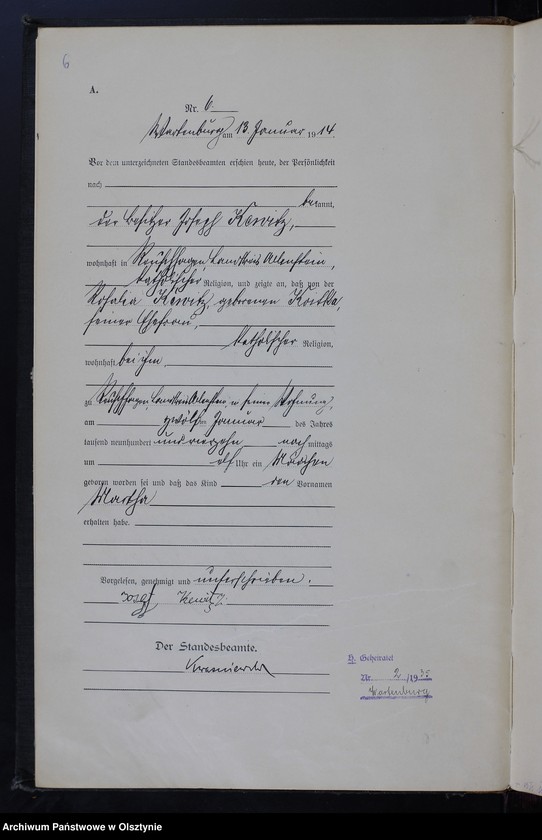 6
A.
Nr. 6
Wartenburg am 13. Januar 1914.
Vor dem unterzeichneten Standesbeamten erschien heute, der Persönlichkeit
nach
bekannt,
der Besitzer Joseph Kewitz,
wohnhaft in Reuschhagen Landkreis Allenstein,
katholischer Religion, und zeigte an, daß von der
Rosalia Kewitz, geborenen Kostka,
seiner Ehefrau,
katholischer Religion,
wohnhaft bei ihm,
zu Reuschhagen, Landkreis Allenstein, in seiner Wohnung,
am zwölften Januar des Jahres
tausend neunhundert und vierzehn nach mittags
um elf Uhr ein Mädchen
geboren worden sei und daß das Kind den Vornamen
Martha
erhalten habe.
Vorgelesen, genehmigt und unterschrieben.
Josef Kewitz
Der Standesbeamte.
H. Geheiratet
Nr. 2 /19 35
Wartenburg
Archiwum Państwowe w Olsztynie